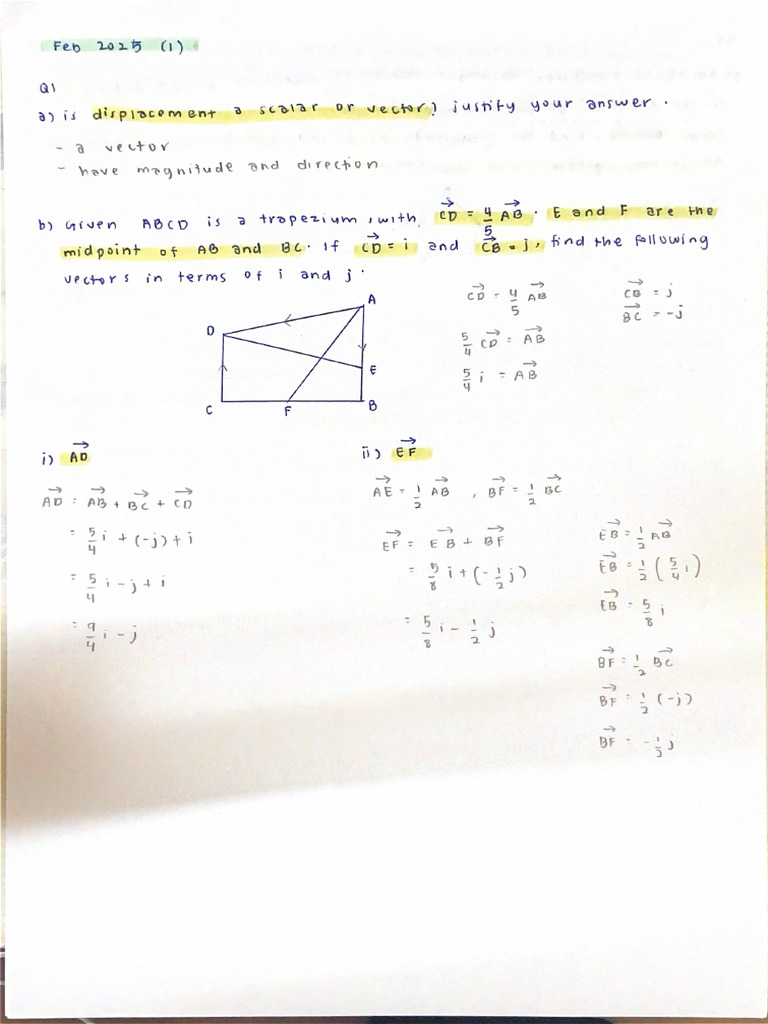 Feb 2025 (1)
Q1
a) is displacement a scalar or vector? justify your answer.
- a vector
- have magnitude and direction
b) Given ABCD is a trapezium, with →CD = 4/5 →AB. E and F are the
midpoint of AB and BC. If →CD = i and →CB = j, find the following
vectors in terms of i and j.
→CD = 4/5 →AB
5/4 →CD = →AB
5/4 i = →AB
→CB = j
→BC = -j
A
D
E
C F B
i) →AD
→AD = →AB + →BC + →CD
= 5/4 i + (-j) + i
= 5/4 i - j + i
= 9/4 i - j
ii) →EF
→AE = 1/2 →AB , →BF = 1/2 →BC
→EF = →EB + →BF
= 5/8 i + (-1/2 j)
= 5/8 i - 1/2 j
→EB = 1/2 →AB
→EB = 1/2 (5/4 i)
→EB = 5/8 i
→BF = 1/2 →BC
→BF = 1/2 (-j)
→BF = -1/2 j